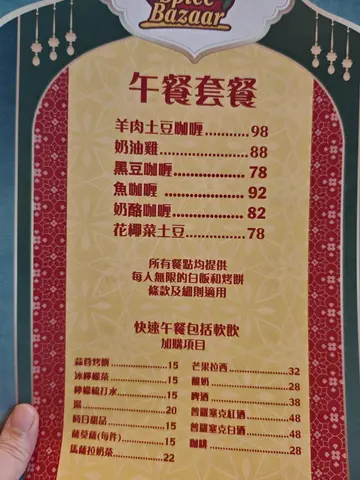 Spice
Bazaar
午餐套餐
羊肉土豆咖喱............98
奶油雞....................88
黑豆咖喱..................78
魚咖喱 ..................92
奶酪咖喱..................82
花椰菜土豆...............78
所有餐點均提供
每人無限的白飯和烤餅
條款及細則適用
快速午餐包括軟飲
加購項目
蒜蓉烤餅..............15
冰檸檬茶..............15
檸檬梳打水............15
湯....................20
時日甜品..............15
薩莫薩(每件)..........15
馬薩拉奶茶............22
芒果拉西..............32
酸奶..................28
啤酒..................38
普羅塞克紅酒..........48
普羅塞克白酒..........48
咖啡..................28